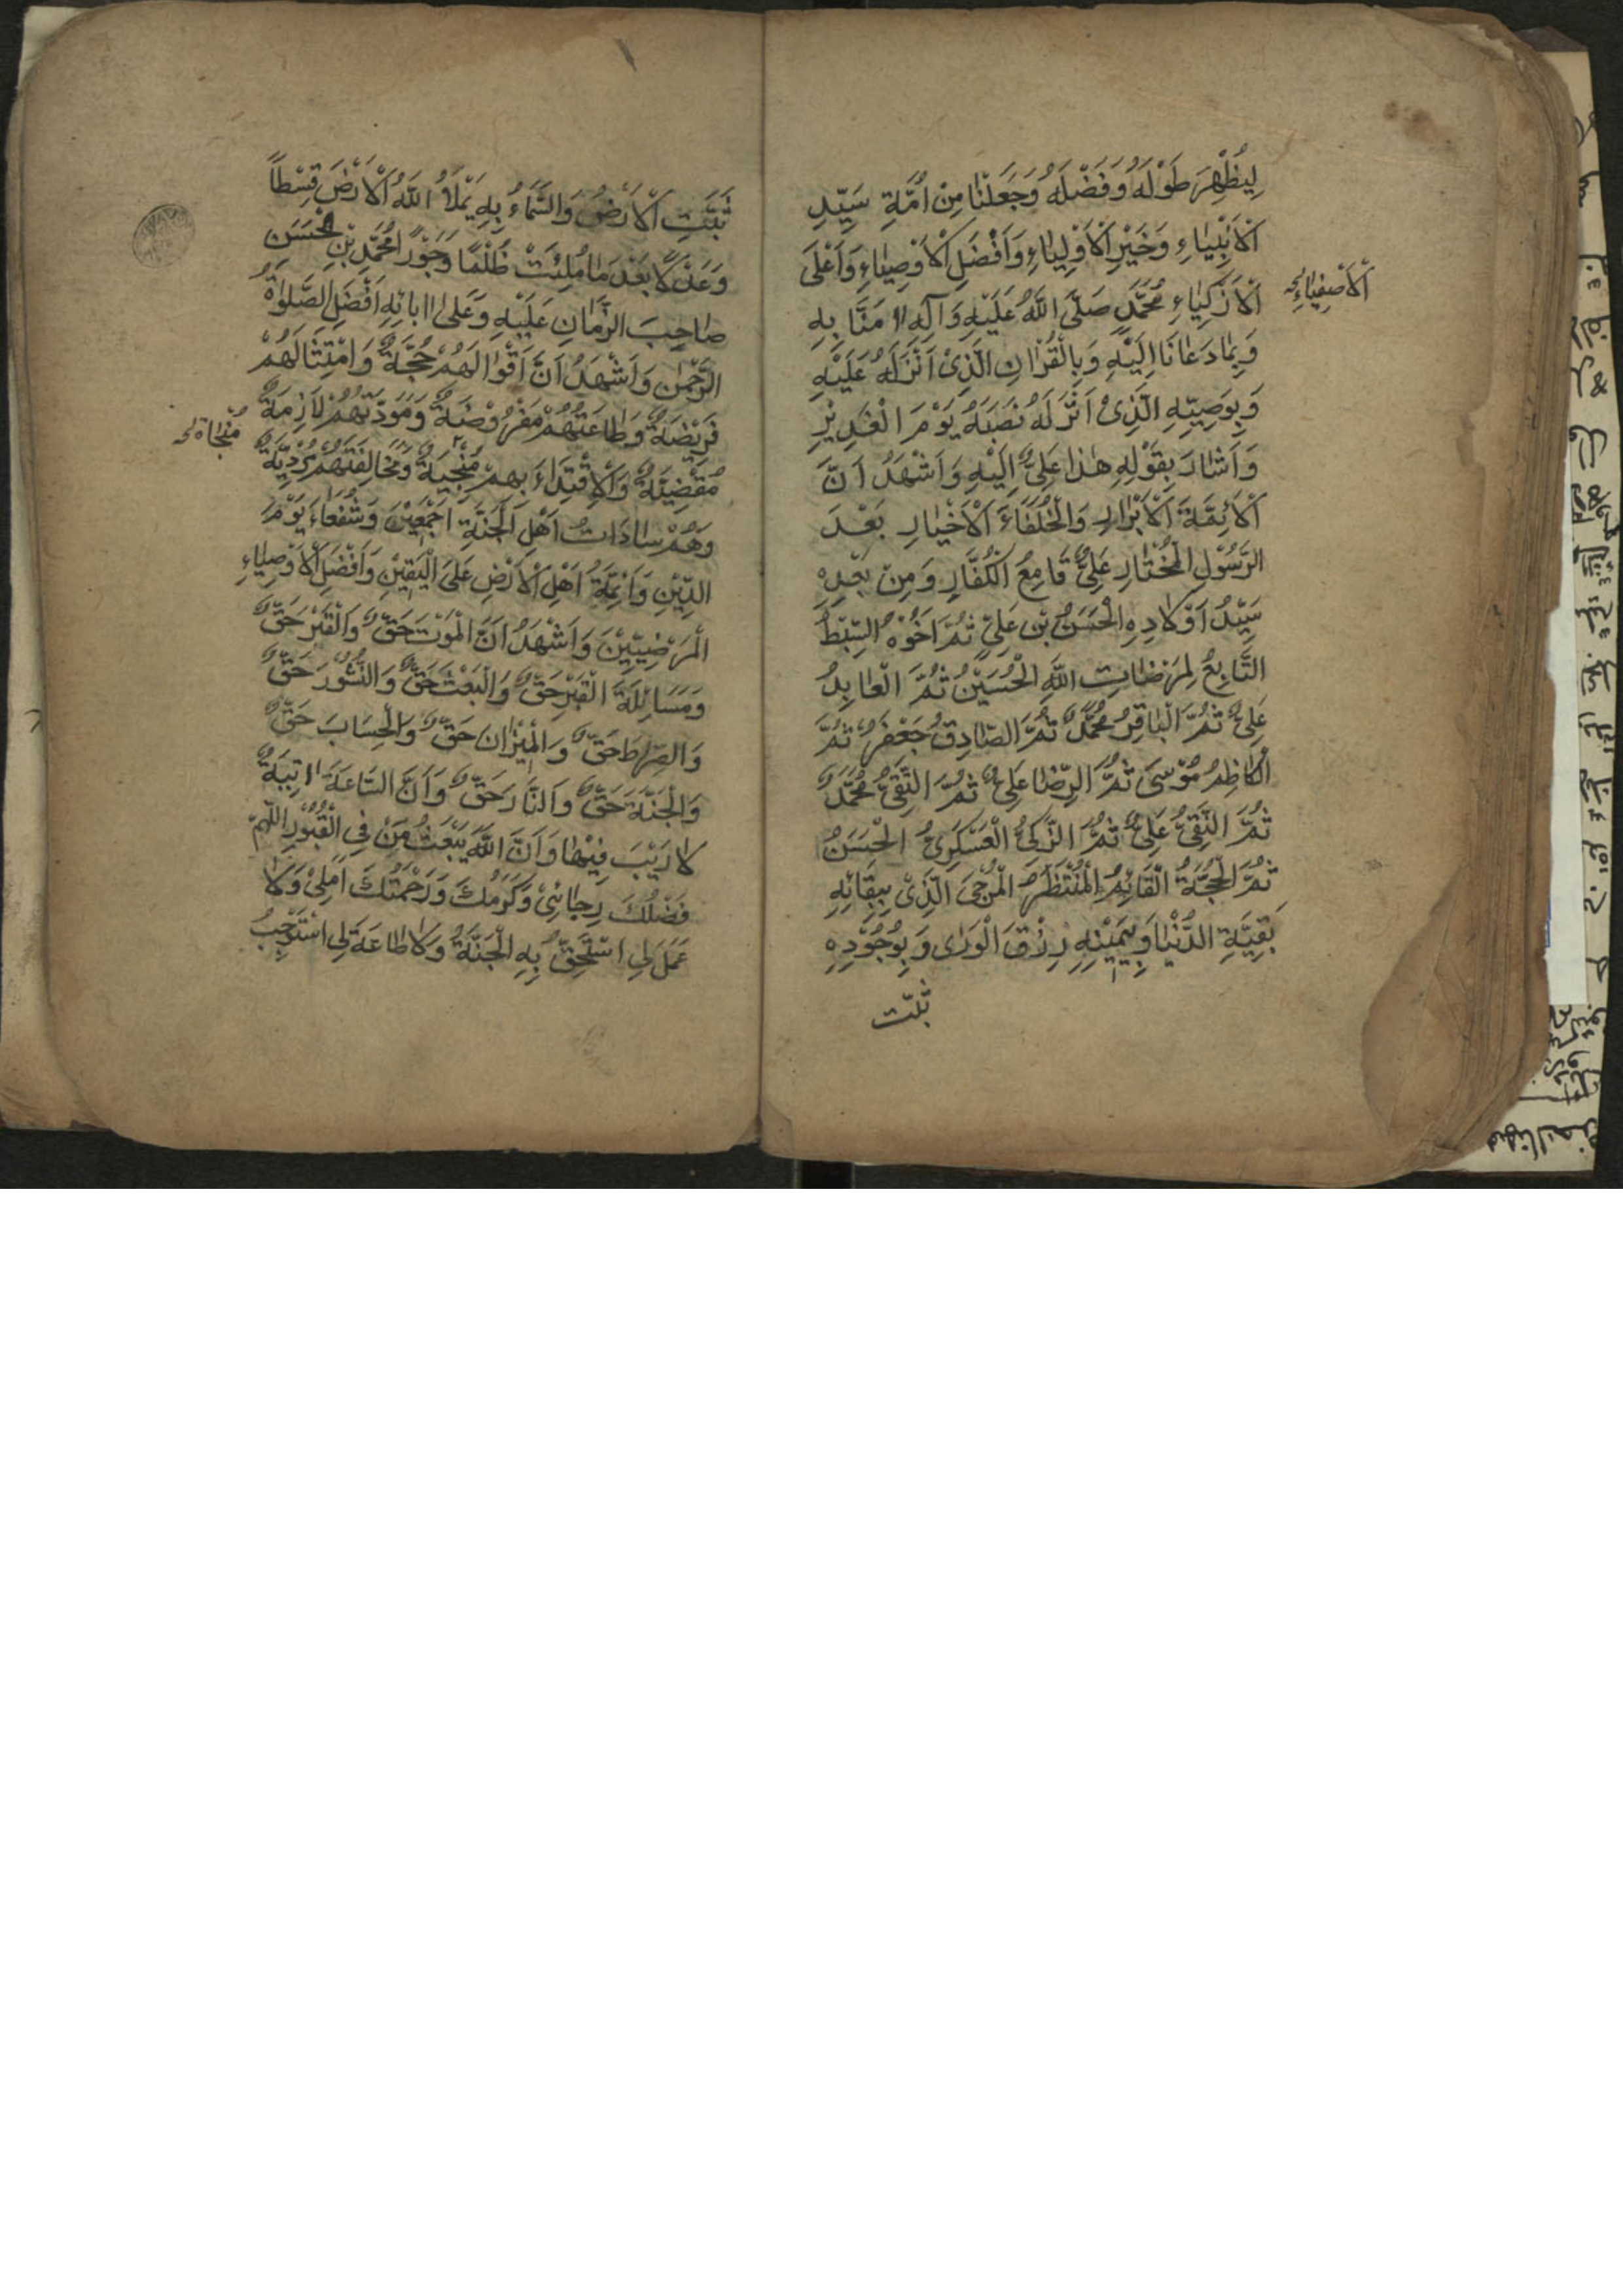 لِيُظْهِرَ طَوْلَهُ وَفَضْلَهُ وَجَعَلْنَا مِنْ اُمَّةِ سَيِّدِ
اَلْاَنْبِيَاءِ وَخَيْرِ اَلْاَوْلِيَاءِ وَاَفْضَلِ اَلْاَوْصِيَاءِ وَاَعْلَى
اَلْاَزْكِيَاءِ مُحَمَّدٍ صَلَّى اللَّهُ عَلَيْهِ وَآلِهِ اٰمَنَّا بِهِ
اَلْاَصْفِيَاءِ
وَبِمَا دَعَانَا اِلَيْهِ وَبِالْقُرْاٰنِ الَّذِىْ اَنْزَلَهُ عَلَيْهِ
وَبِوَصِيِّهِ الَّذِىْ اَنْزَلَهُ نَصَبَهُ يَوْمَ الْغَدِيْرِ
وَاَشَارَ بِقَوْلِهِ هٰذَا عَلِىٌّ اِلَيْهِ وَاَشْهَدُ اَنَّ
اَلْاَئِمَّةَ اَلْاَبْرَارِ وَالْخُلَفَاءَ اَلْاَخْيَارِ بَعْدَ
الرَّسُوْلِ الْمُخْتَارِ عَلِىٌّ قَامِعُ الْكُفَّارِ وَمِنْ بَعْدِهٖ
سَيِّدُ اَوْلَادِهِ الْحَسَنُ بْنِ عَلِىٍّ ثُمَّ اَخُوْهُ السِّبْطُ
التَّابِعُ لِمَرْضَاتِ اللَّهِ الْحُسَيْنُ ثُمَّ الْعَابِدُ
عَلِىٌّ ثُمَّ الْبَاقِرُ مُحَمَّدٌ ثُمَّ الصَّادِقُ جَعْفَرٌ ثُمَّ
الْكَاظِمُ مُوْسٰى ثُمَّ الرِّضَا عَلِىٌّ ثُمَّ التَّقِىُّ مُحَمَّدٌ
ثُمَّ النَّقِىُّ عَلِىٌّ ثُمَّ الزَّكِىُّ الْعَسْكَرِىُّ الْحَسَنُ
ثُمَّ الْحُجَّةُ الْقَائِمُ الْمُنْتَظَرُ الْمُرْجَى الَّذِىْ بِبَقَائِهِ
بَقِيَّةِ الدُّنْيَا وَبِيُمْنِهِ رِزْقَ الْوَرٰى وَبِوُجُوْدِهِ
ثبتت
ثَبَتَتِ اَلْاَرْضُ وَالسَّمَاءُ بِهِ يَمْلَاُ اللَّهُ اَلْاَرْضَ قِسْطًا
وَعَدْلًا بَعْدَ مَا مُلِئَتْ ظُلْمًا وَجَوْرًا مُحَمَّدِ بْنِ الْحَسَنِ
صَاحِبَ الزَّمَانِ عَلَيْهِ وَعَلٰى اٰبَائِهِ اَفْضَلِ الصَّلوٰةُ
الرَّحْمٰنِ وَاَشْهَدُ اَنَّ اَقْوَالَهُمْ حُجَّةٌ وَامْتِثَالَهُمْ
فَرِيْضَةٌ وَطَاعَتَهُمْ مَفْرُوْضَةٌ وَمَوَدَّتَهُمْ لَازِمَةٌ
مُقْضِيَةٌ وَالْاِقْتِدَاءَ بِهِمْ مُنْجِيَةٌ وَمُخَالِفَتَهُمْ مُرْدِيَةٌ
مُنْجَاة
وَهُمْ سَادَاتُ اَهْلِ الْجَنَّةِ اَجْمَعِيْنَ وَشُفَعَاءَ يَوْمَ
الدِّيْنِ وَاَئِمَّةُ اَهْلِ الْاَرْضِ عَلَى الْيَقِيْنِ وَاَفْضَلِ الْاَوْصِيَاءِ
الْمَرْضِيِّيْنَ وَاَشْهَدُ اَنَّ الْمَوْتَ حَقٌّ وَالْقَبْرَ حَقٌّ
وَمَسَائِلَةَ الْقَبْرِ حَقٌّ وَالْبَعْثَ حَقٌّ وَالنُّشُوْرَ حَقٌّ
وَالصِّرَاطَ حَقٌّ وَالْمِيْزَانَ حَقٌّ وَالْحِسَابَ حَقٌّ
وَالْجَنَّةَ حَقٌّ وَالنَّارَ حَقٌّ وَاَنَّ السَّاعَةَ اٰتِيَةٌ
لَا رَيْبَ فِيْهَا وَاَنَّ اللَّهَ يَبْعَثُ مَنْ فِى الْقُبُوْرِ اللّٰهُمَّ
فَضْلُكَ رَجَائِىْ وَكَرَمُكَ وَرَحْمَتُكَ اَمَلِىْ وَلَا
عَمَلَ لِى اَسْتَحِقُّ بِهِ الْجَنَّةَ وَلَا طَاعَةَ لِى اَسْتَوْجِبُ